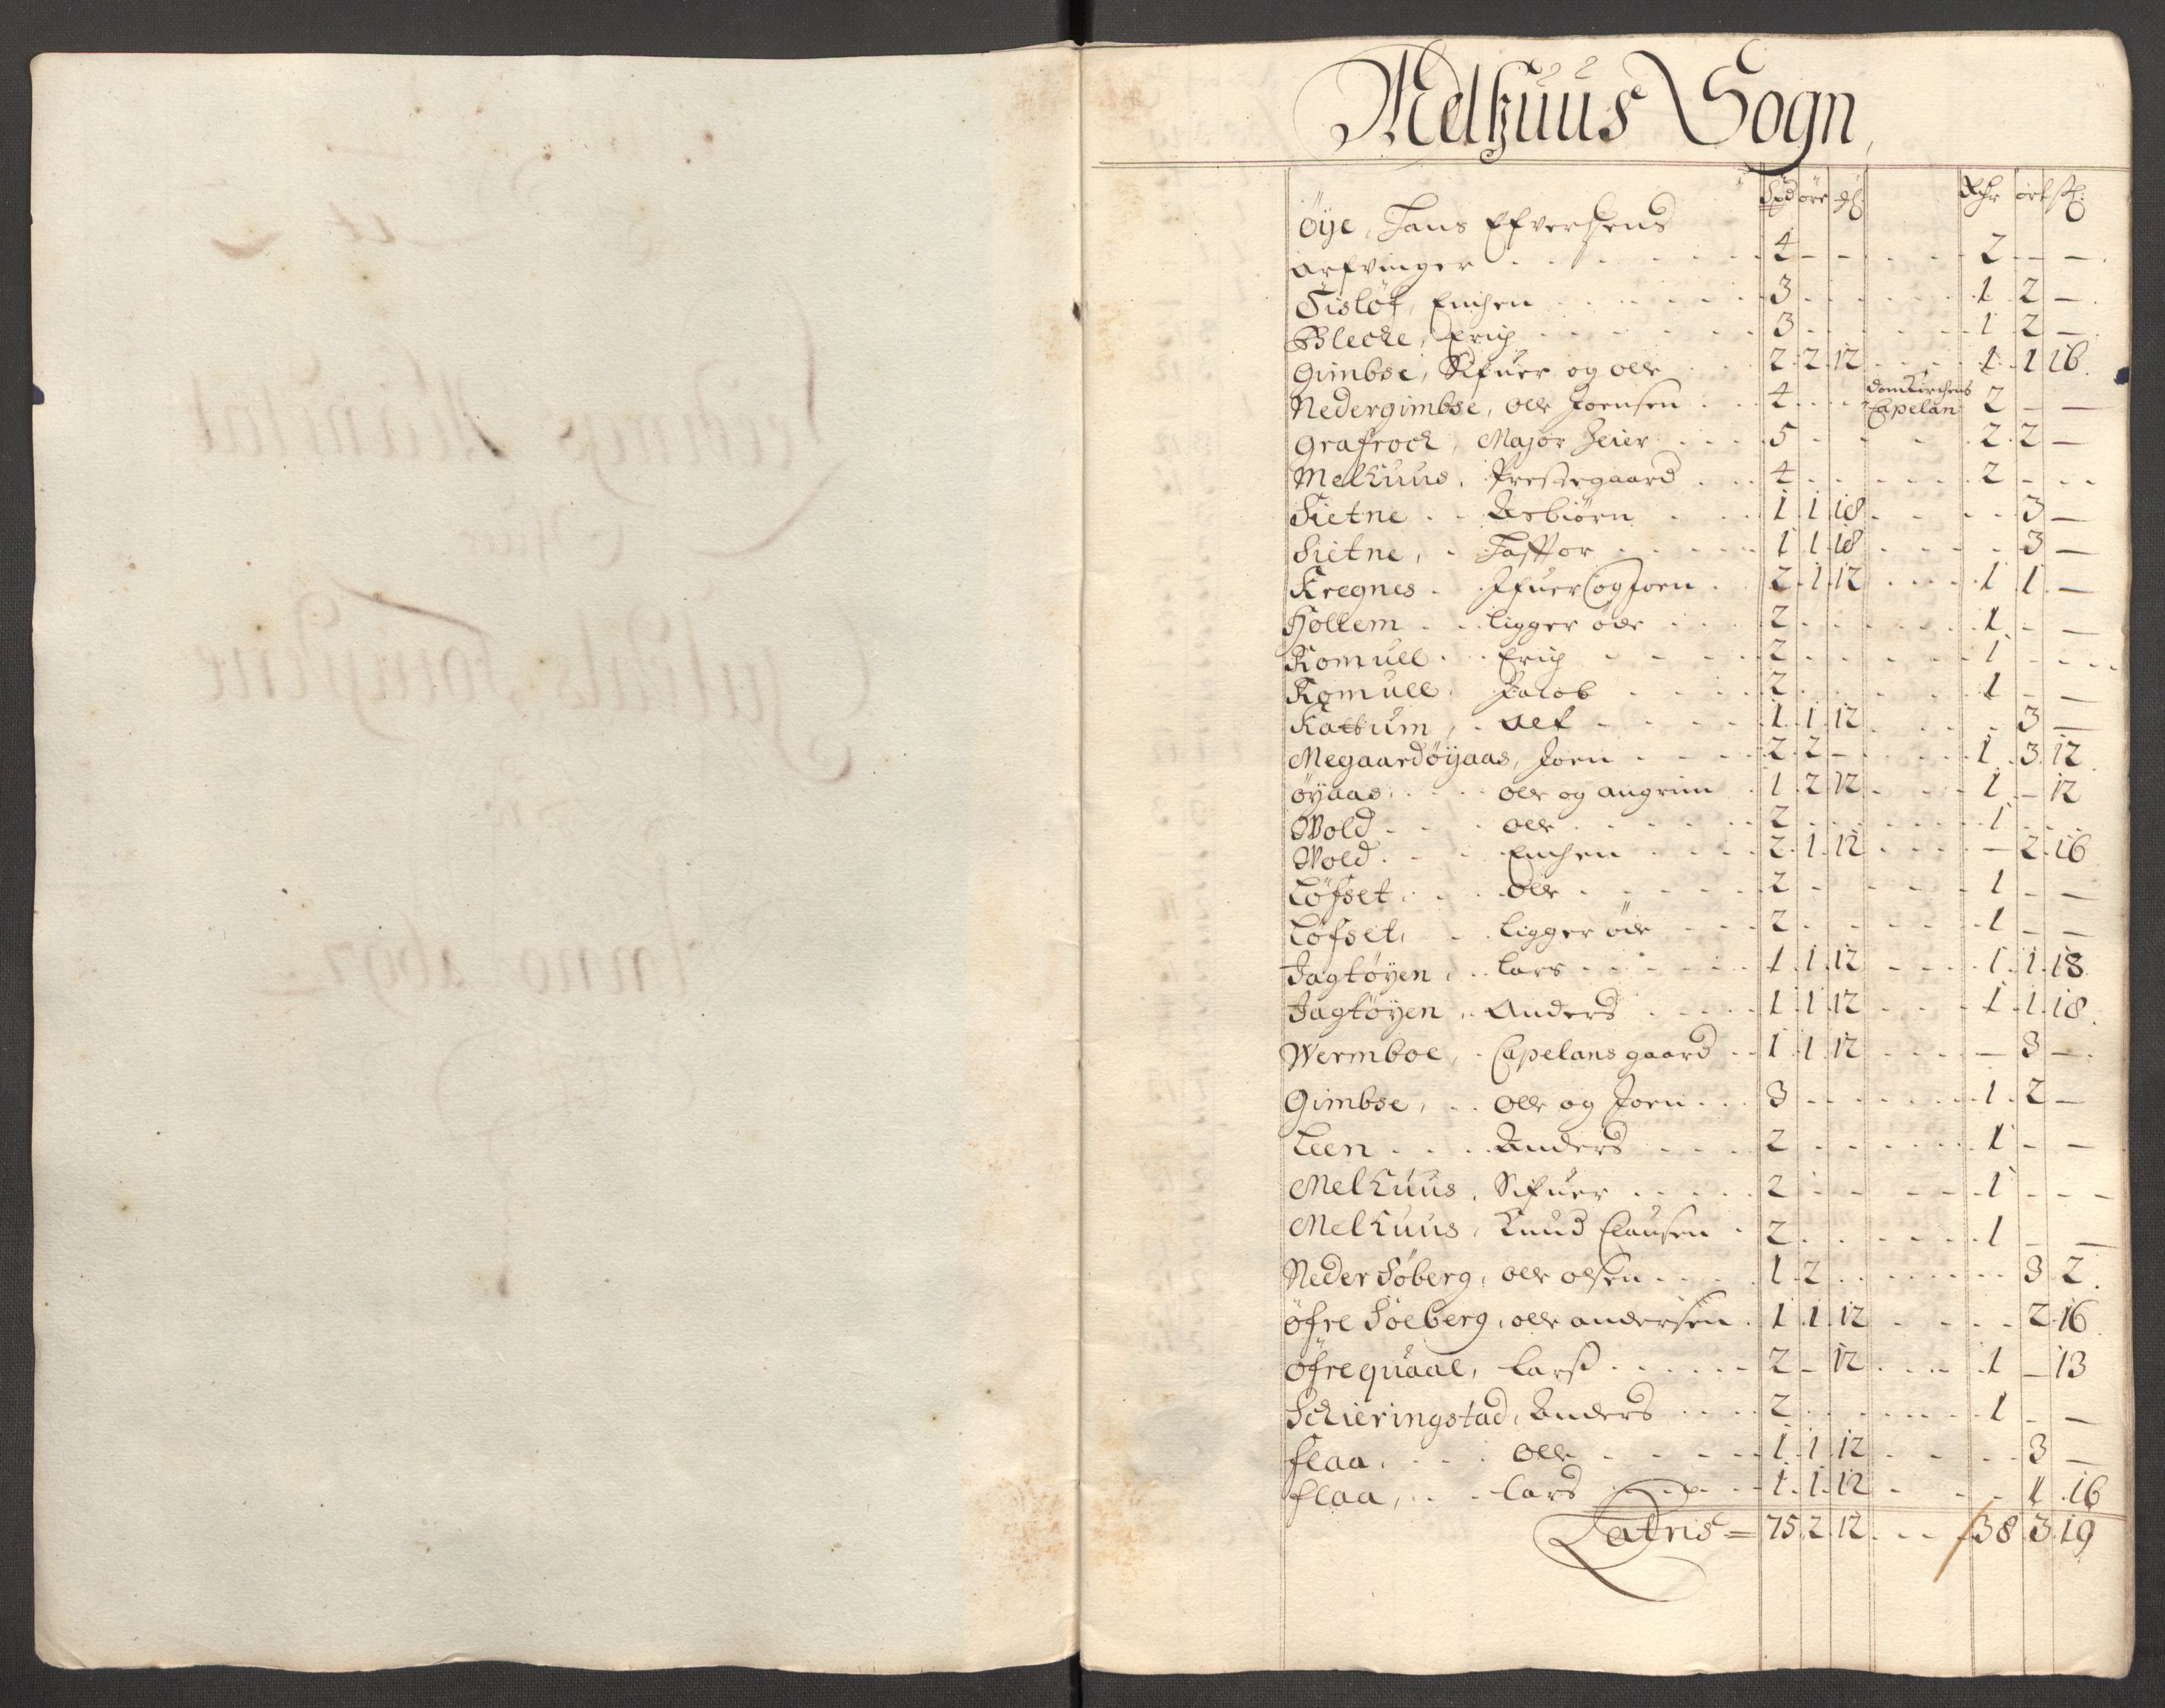 Melhuus Sogn,
Spd øre &c: Rdr ort sk:
Øye, Hans Efversens
arfvinger 4 - - 2 - -
Sisløf, Enchen 3 1 2 -
Blecke, Erich 3 1 2 -
Gimbse, Sifuer og olle 2 2 12 1 1 16
Nedergimbse, olle Joensen 4 domkirchens Capelan 2 - -
Grafrock, Major Heier 5 2 2 -
Melhuus, Prestegaard 4 2 - -
Sietne Asbiörn 1 1 18 3 -
Sietne, Haffvor 1 1 18 3 -
Kregnes Ifuer og Joen 2 1 12 1 1 -
Hollem ligger öde 2 1 - -
Romull Erich 2 1 - -
Romull Jacob 2 1 - -
Kattum, olf 1 1 12 3 -
Megaardöyaas, Joen 2 2 - 1 3 12
Öyaas olle og angrim 1 2 12 1 - 12
Wold olle 2 1 - -
Wold Enchen 2 1 12 - 2 16
Löfset olle 2 1 - -
Löfset, ligger öde 2 1 - -
Jagtöyen, Lars 1 1 12 1 1 18
Jagtöyen, Anders 1 1 12 1 1 18
Wermboe, Capelans gaard 1 1 12 - 3 -
Gimbse, olle og Joen 3 1 2 -
Leen Anders 2 1 - -
Melhuus, Sifuer 2 1 - -
Melhuus, Knud Clausen 2 1 - -
Neder Söberg, olle olsen 1 2 3 2
Öfre Söeberg, olle andersen 1 1 12 2 16
Öfre quaal, Lars 2 - 12 1 - 13
Schieringstad, Anders 2 1 - -
Flaa, olle 1 1 12 3 -
Flaa, Lars 1 1 12 1 16
Latris = 75 2 12 38 3 19